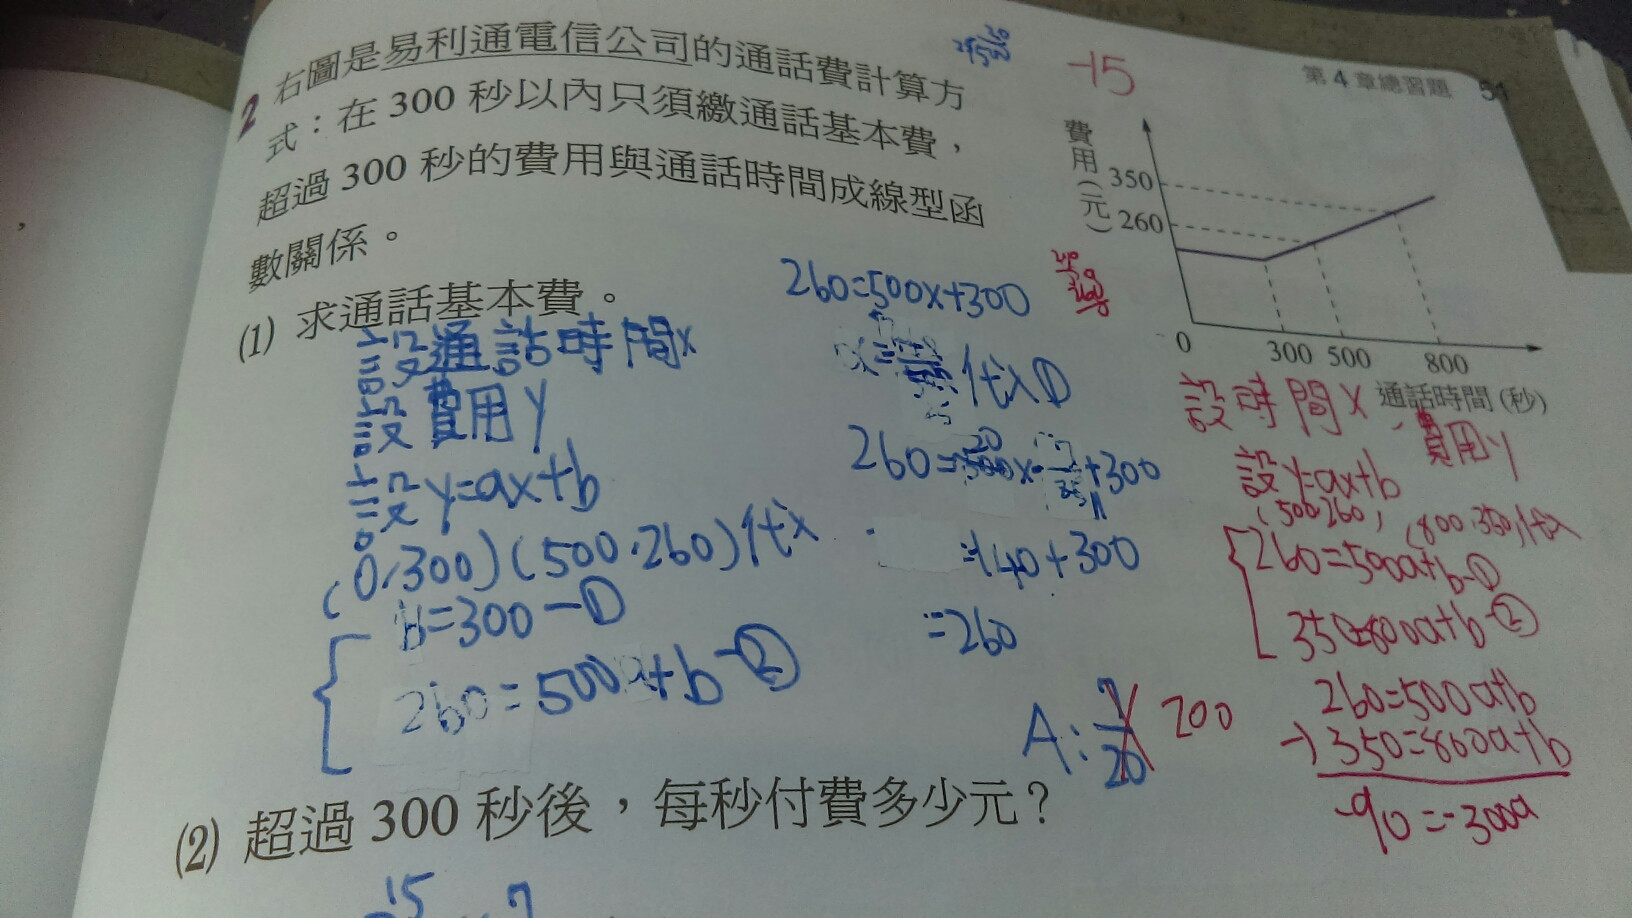 第4章總習題 51
-15
2 右圖是易利通電信公司的通話費計算方
式：在 300 秒以內只須繳通話基本費，
超過 300 秒的費用與通話時間成線型函
數關係。
費用(元)
350
260
0
300 500 800
通話時間(秒)
(1) 求通話基本費。
設通話時間x
設費用y
設y=ax+b
(0,300)(500,260)代入
b=300-①
260=500a+b-②
260=500x+300
代入①
+300
=140+300
=260
A: 7/20 200
設時間x,費用y
設y=ax+b
(500,260),(800,350)代入
260=500a+b-①
350=800a+b-②
260=500a+b
-)350=800a+b
-90=-300a
(2) 超過 300 秒後，每秒付費多少元？
15
7